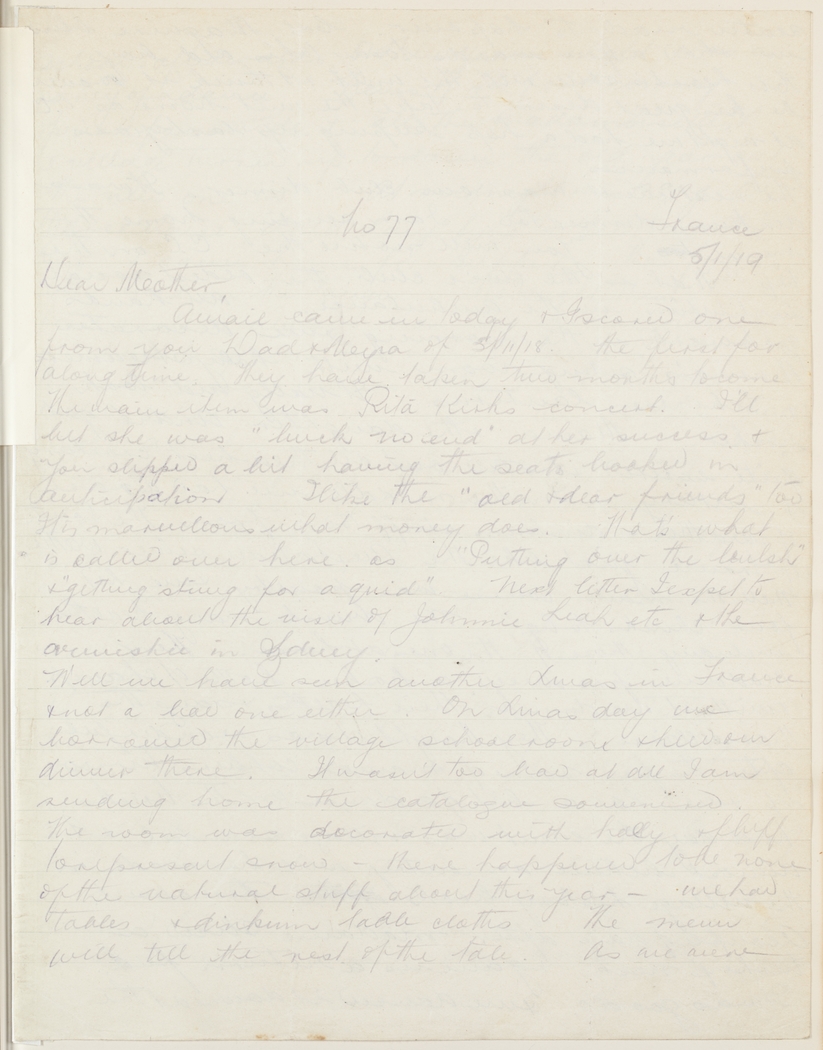 No 77 France
5/1/19
Dear Mother,
A mail came in today & I scored one
from you Dad & Meyra of 5/11/18. the first for
a long time. They have taken two months to come
The main item was Rita Kirks concert. I'll
bet she was "buck no end" at her success &
you slipped a bit having the seats booked in
anticipation I like the "old & dear friends" too
It is marvellous what money does. That's what
is called over here. as "Putting over the"
& "getting stung for a quid". Next letter I expect to
hear about the visit of Johnnie Leah etc & the
armistice in Sydney.
Well we have seen another Xmas in France
& not a bad one either. On Xmas day we
borrowed the village school room & held our
dinner there. It wasn't too bad at all I am
sending home the catalogue souvenired.
The room was decorated with holly & fluff
to represent snow - there happened to be none
of the natural stuff about this year - we had
tables & dinkum table cloths The menu
will tell the rest of the tale. As we were